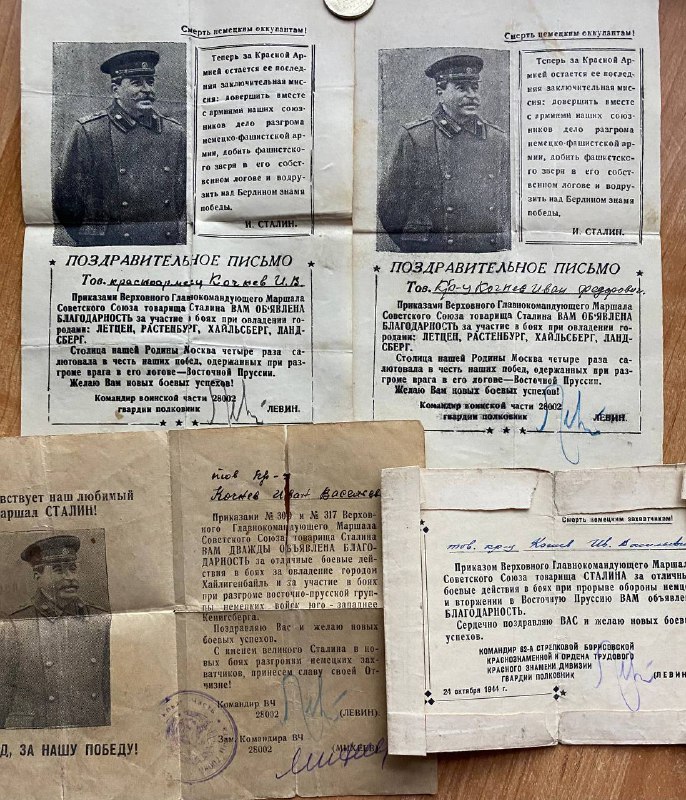 Смерть немецким оккупантам!
Теперь за Красной Ар-
мией остается ее послед-
няя заключительная мис-
сия: довершить вместе
с армиями наших союз-
ников дело разгрома
немецко-фашистской ар-
мии, добить фашистско-
го зверя в его собст-
венном логове и водру-
зить над Берлином знамя
победы.
И. СТАЛИН.
ПОЗДРАВИТЕЛЬНОЕ ПИСЬМО
Тов. красноармейцу Кочнев И.В.
Приказами Верховного Главнокомандующего Маршала
Советского Союза товарища Сталина ВАМ ОБ'ЯВЛЕНА
БЛАГОДАРНОСТЬ за участие в боях при овладении го-
родами: ЛЕТЦЕН, РАСТЕНБУРГ, ХАЙЛЬСБЕРГ, ЛАНД-
СБЕРГ.
Столица нашей Родины Москва четыре раза са-
лютовала в честь наших побед, одержанных при раз-
громе врага в его логове—Восточной Пруссии.
Желаю Вам новых боевых успехов!
Командир воинской части 28002
гвардии полковник
ЛЕВИН.
Смерть немецким оккупантам!
Теперь за Красной Ар-
мией остается ее послед-
няя заключительная мис-
сия: довершить вместе
с армиями наших союз-
ников дело разгрома
немецко-фашистской ар-
мии, добить фашистско-
го зверя в его собст-
венном логове и водру-
зить над Берлином знамя
победы.
И. СТАЛИН.
ПОЗДРАВИТЕЛЬНОЕ ПИСЬМО
Тов. Кр-у Кочнев Иван Федорович.
Приказами Верховного Главнокомандующего Маршала
Советского Союза товарища Сталина ВАМ ОБ'ЯВЛЕНА
БЛАГОДАРНОСТЬ за участие в боях при овладении го-
родами: ЛЕТЦЕН, РАСТЕНБУРГ, ХАЙЛЬСБЕРГ, ЛАНД-
СБЕРГ.
Столица нашей Родины Москва четыре раза са-
лютовала в честь наших побед, одержанных при раз-
громе врага в его логове—Восточной Пруссии.
Желаю Вам новых боевых успехов!
Командир воинской части 28002
гвардии полковник
ЛЕВИН.
вствует наш любимый
аршал СТАЛИН!
Д, ЗА НАШУ ПОБЕДУ!
тов кр-у
Кочнев Иван
Приказами № 309 и № 317 Верхов-
ного Главнокомандующего Маршала
Советского Союза товарища Сталина
ВАМ ДВАЖДЫ ОБЪЯВЛЕНА БЛАГО-
ДАРНОСТЬ за отличные боевые дейст-
вия в боях за овладение городом
Хайлигенбайль и за участие в боях
при разгроме восточно-прусской груп-
пы немецких войск юго-западнее
Кенигсберга.
Поздравляю Вас и желаю новых
боевых успехов.
С именем великого Сталина в но-
вых боях разгромим немецких зах-
ватчиков, принесем славу своей От-
чизне!
Командир ВЧ
28002
(ЛЕВИН).
Зам. Командира ВЧ
28002
(МИХЕЕВ)
Смерть немецким захватчикам!
тов. кр-у Кочнев Ив.
Приказом Верховного Главнокомандующего Маршала
Советского Союза товарища СТАЛИНА за отличные
боевые действия в боях при прорыве обороны немц
и вторжении в Восточную Пруссию ВАМ объявлена
БЛАГОДАРНОСТЬ.
Сердечно поздравляю ВАС и желаю новых боевых
успехов.
КОМАНДИР 82-й СТРЕЛКОВОЙ БОРИСОВСКОЙ
КРАСНОЗНАМЕННОЙ И ОРДЕНА ТРУДОВОГО
КРАСНОГО ЗНАМЕНИ ДИВИЗИИ
ГВАРДИИ ПОЛКОВНИК
(ЛЕВИН
24 октября 1944 г.